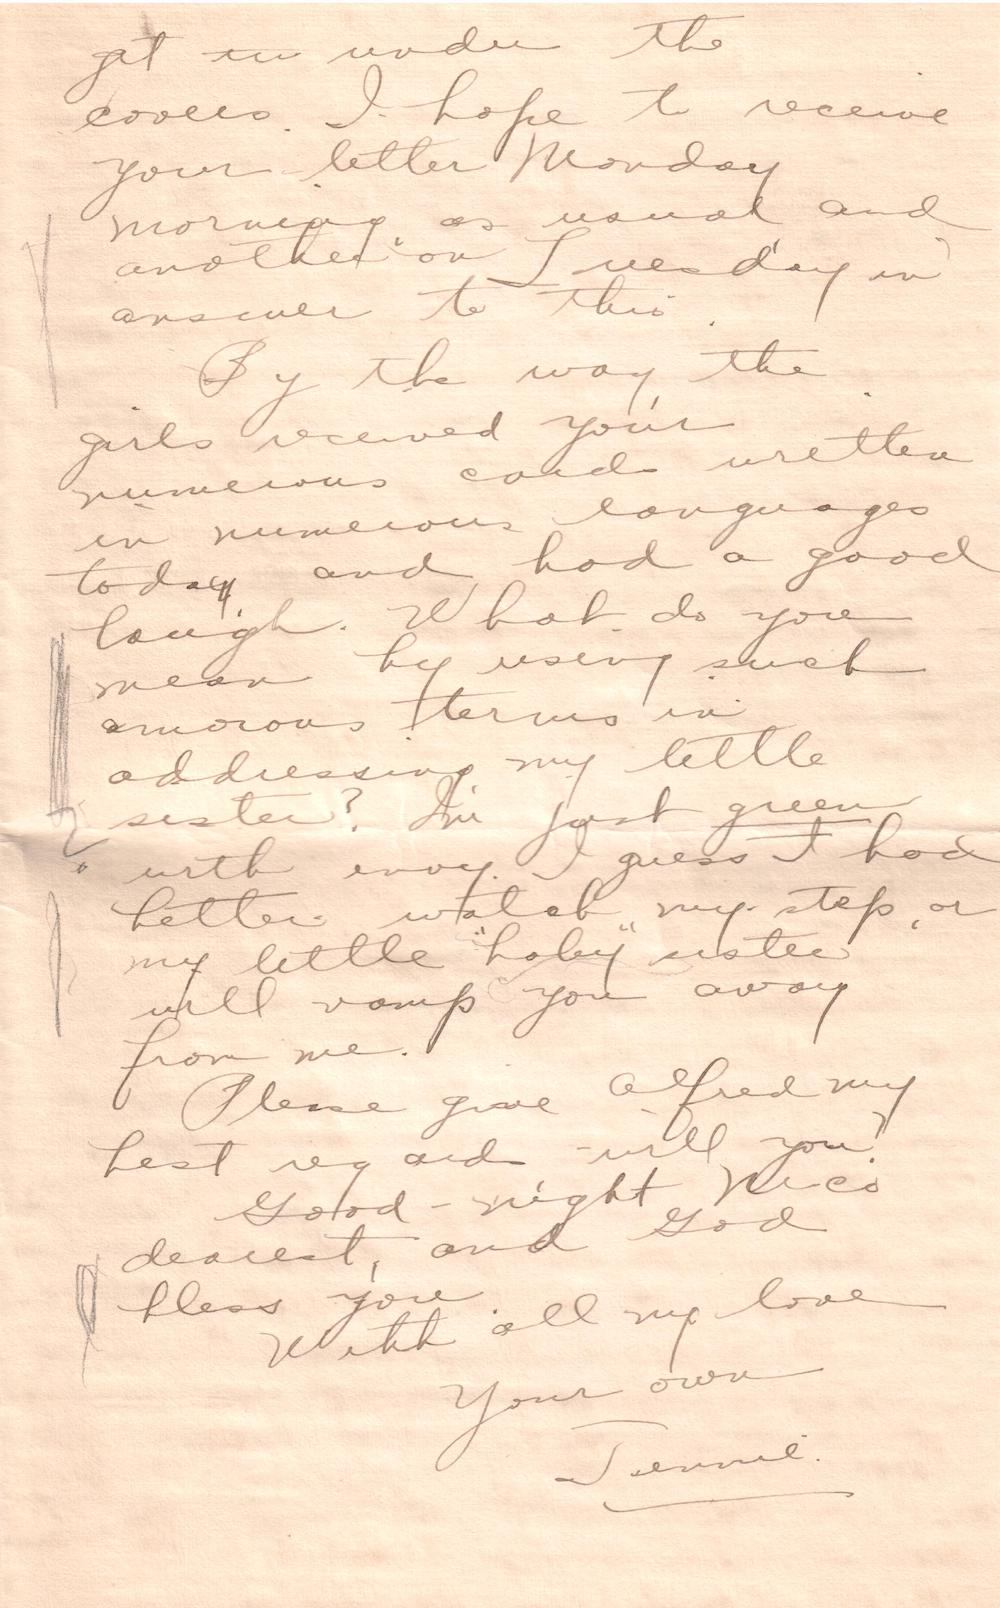 get in under the
covers. I hope to receive
your letter Monday
morning as usual and
another on Tuesday in
answer to this.
By the way the
girls received your
numerous cards written
in numerous languages
today and had a good
laugh. What do you
mean by using such
amorous terms in
addressing my little
sister? I'm just green
with envy. I guess I had
better watch my step, or
my little "baby" sister
will vamp you away
from me.
Please give Alfred my
best regards will you?
Good-night Nico
dearest, and God
bless you.
With all my love
Your own
Jennie.